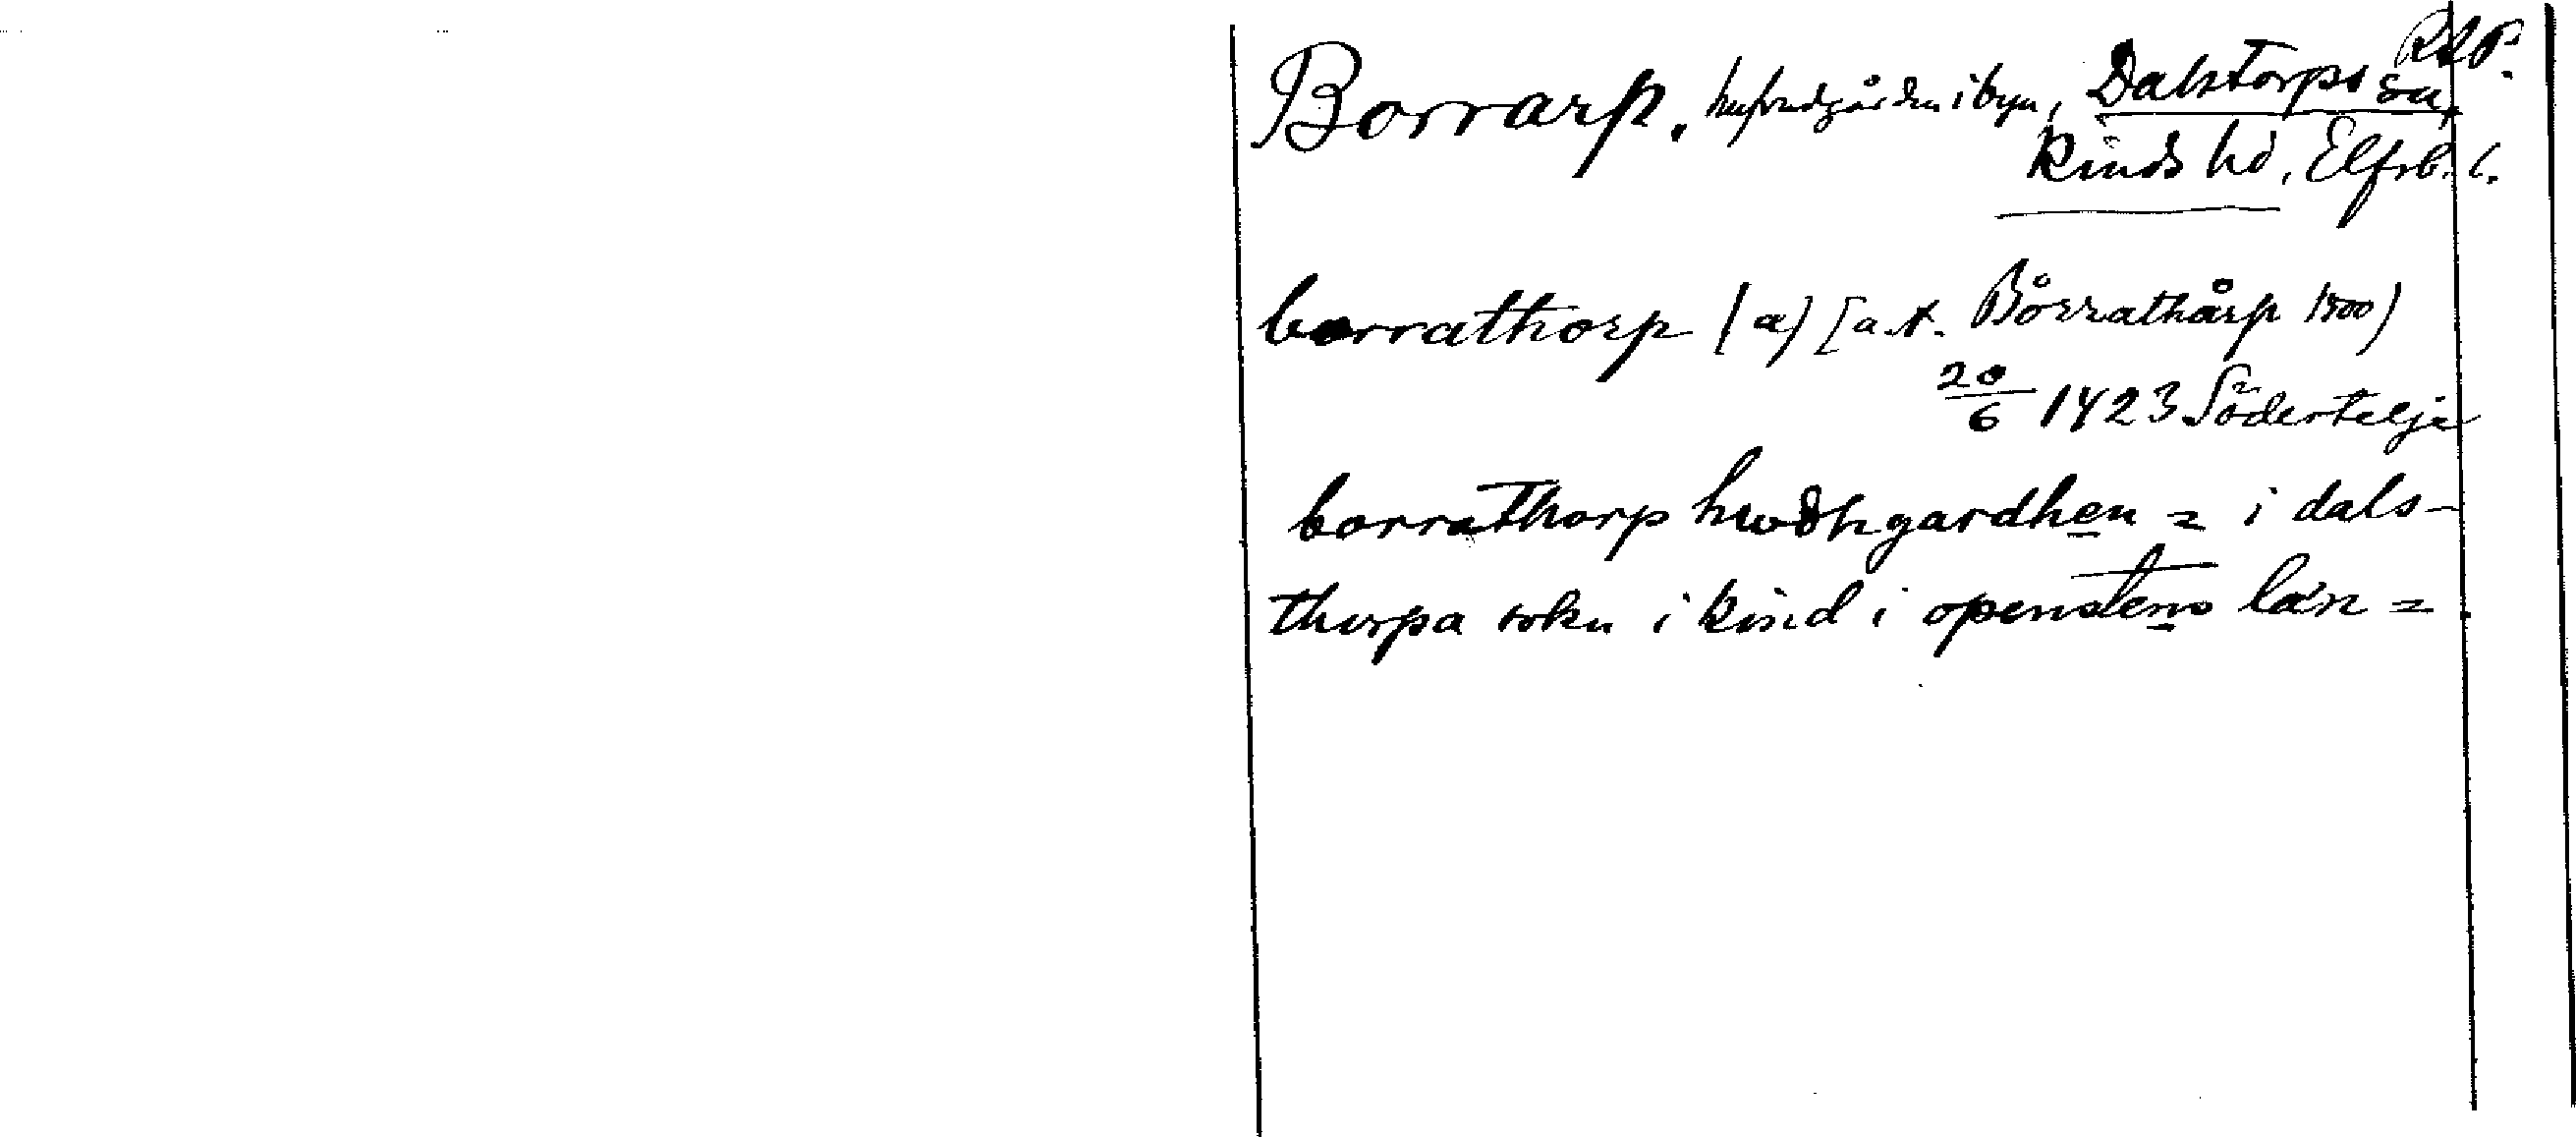 RAP.
Borrarp, hufvudgården i byn, Dalstorps sn,
Kinds hd, Elfsb. l.
borrathorp (a) [a.t. Börrathårp 1500)
20/6 1423 Södertelje
borrathorp hwdhgardhen = i dals-
thorpa sokn i kind i openstens län =